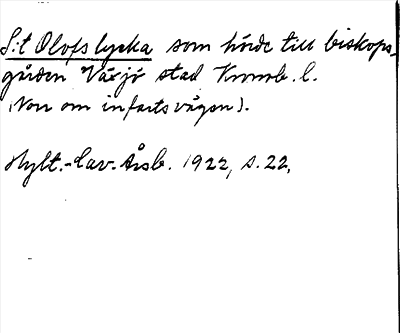 S:t Olofs lycka som hörde till biskops-
gården Växjö stad Kronob. l.
(Norr om infartsvägen).
Hylt.-Cav. Årsb. 1922, s. 22,